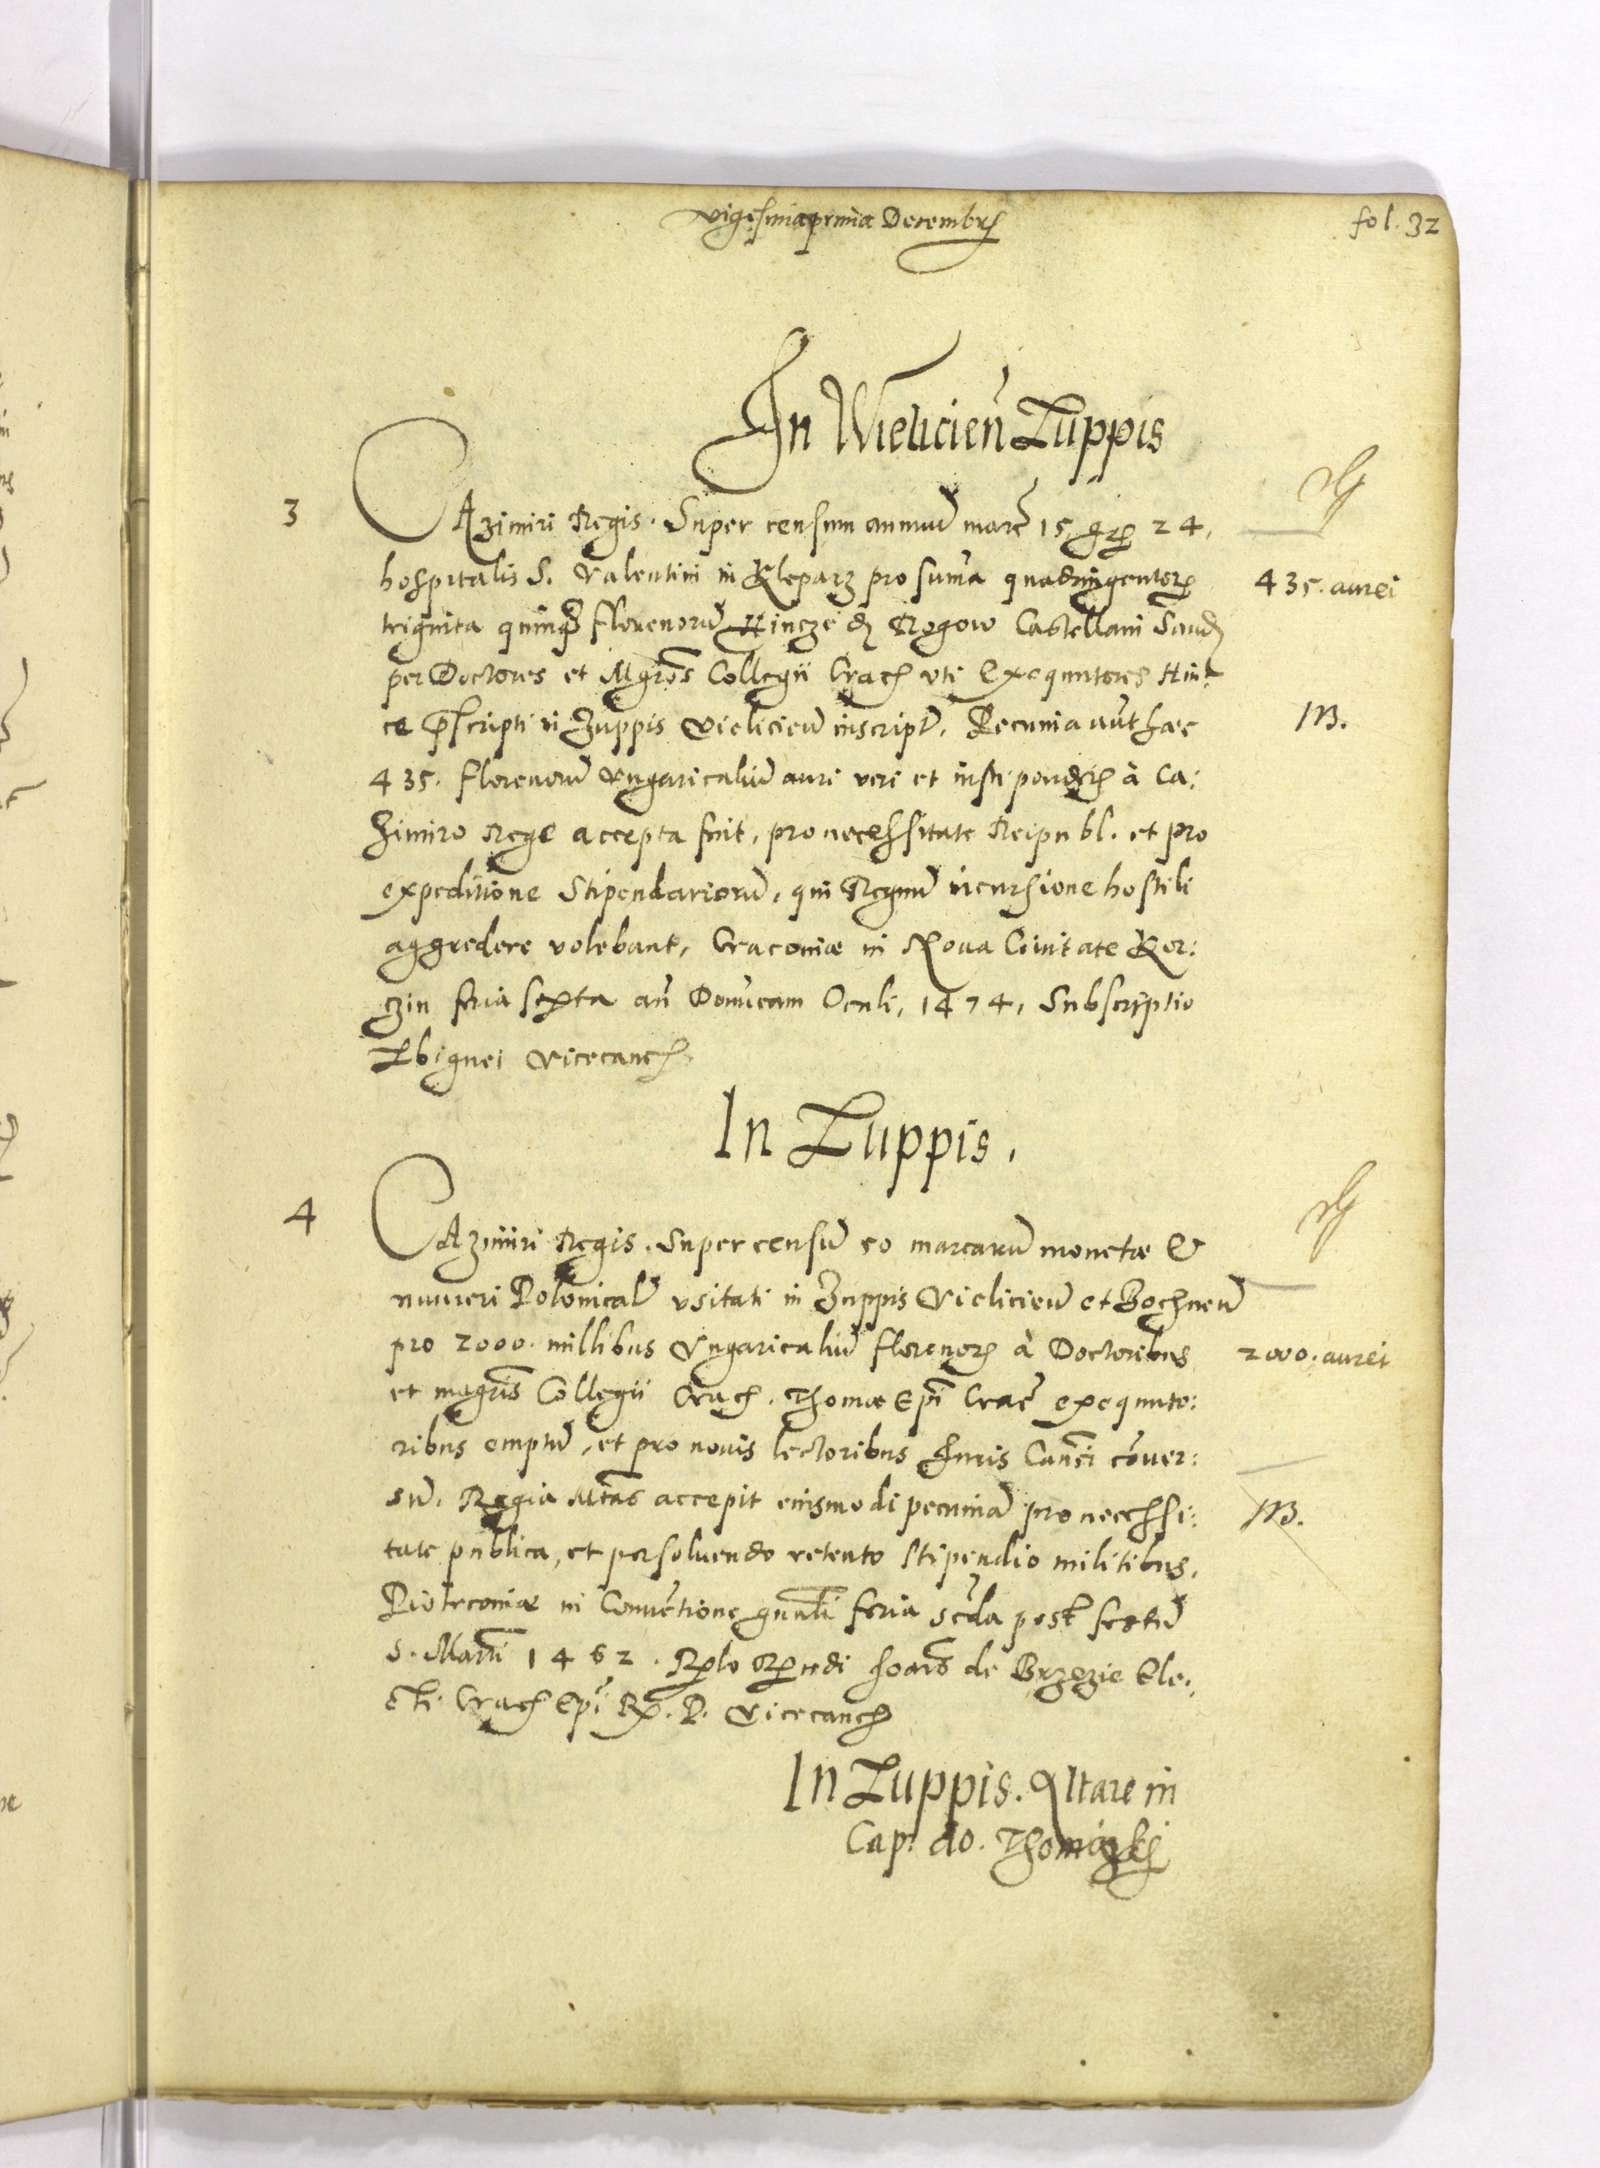 vigesimaprima Decembrȩ
fol. 32
In Wieliciēn Zuppis
3
CAzimiri Regis. Super censum annuū marc̄ 15 gr 24,
hospitalis S. Valentini in Kleparz pro sum̄a quadringentor
435. aurei
triginta quinqȝ florenorū Hincze d Rogow Castellani Sand
per Doctores et Mgros Collegii Crac vti Exequutores Hin:
ce pscripti in Zuppis Vielicien inscript. Pecunia aut haec
M.
435. florenorū Vngaricaliū auri veri et iusti ponder à Ca:
zimiro Rege accepta fuit, pro necessitate Reipubl. et pro
expeditione Stipendariorū, qui Regnū incursione hostili
aggredere volebant, Cracoviae in Noua Ciuitate Kor:
czin feria sexta an Domicam Oculi, 1474, Subscriptio
Zbignei Vicecanc
In Zuppis.
4
CAzimiri Regis. Super censū 50 marcarū monetae &
numeri Polonical vsitati in Zuppis Vielicien et Bochnen
pro 2000. millibus Vngaricaliū florenor à Doctoribus
2000. aurei
et magris Collegii Crac. Thomae Epi Crac exequuto:
ribus emptū, et pro nouis lectoribus Iuris Canci conuer:
sū. Regia Mtas accepit eiusmodi pecuniā pro necessi:
M.
tate publica, et persoluendo retento stipendio militibus.
Piotrcoviae in Conuentione gnali feria scda post festū
S. Marti 1462. Rlo Rndi Joais de Brzezie Ele:
cti Crac Epi R. P. Vicecanc
In Zuppis. Altare in
Cap: do. Thomiczki